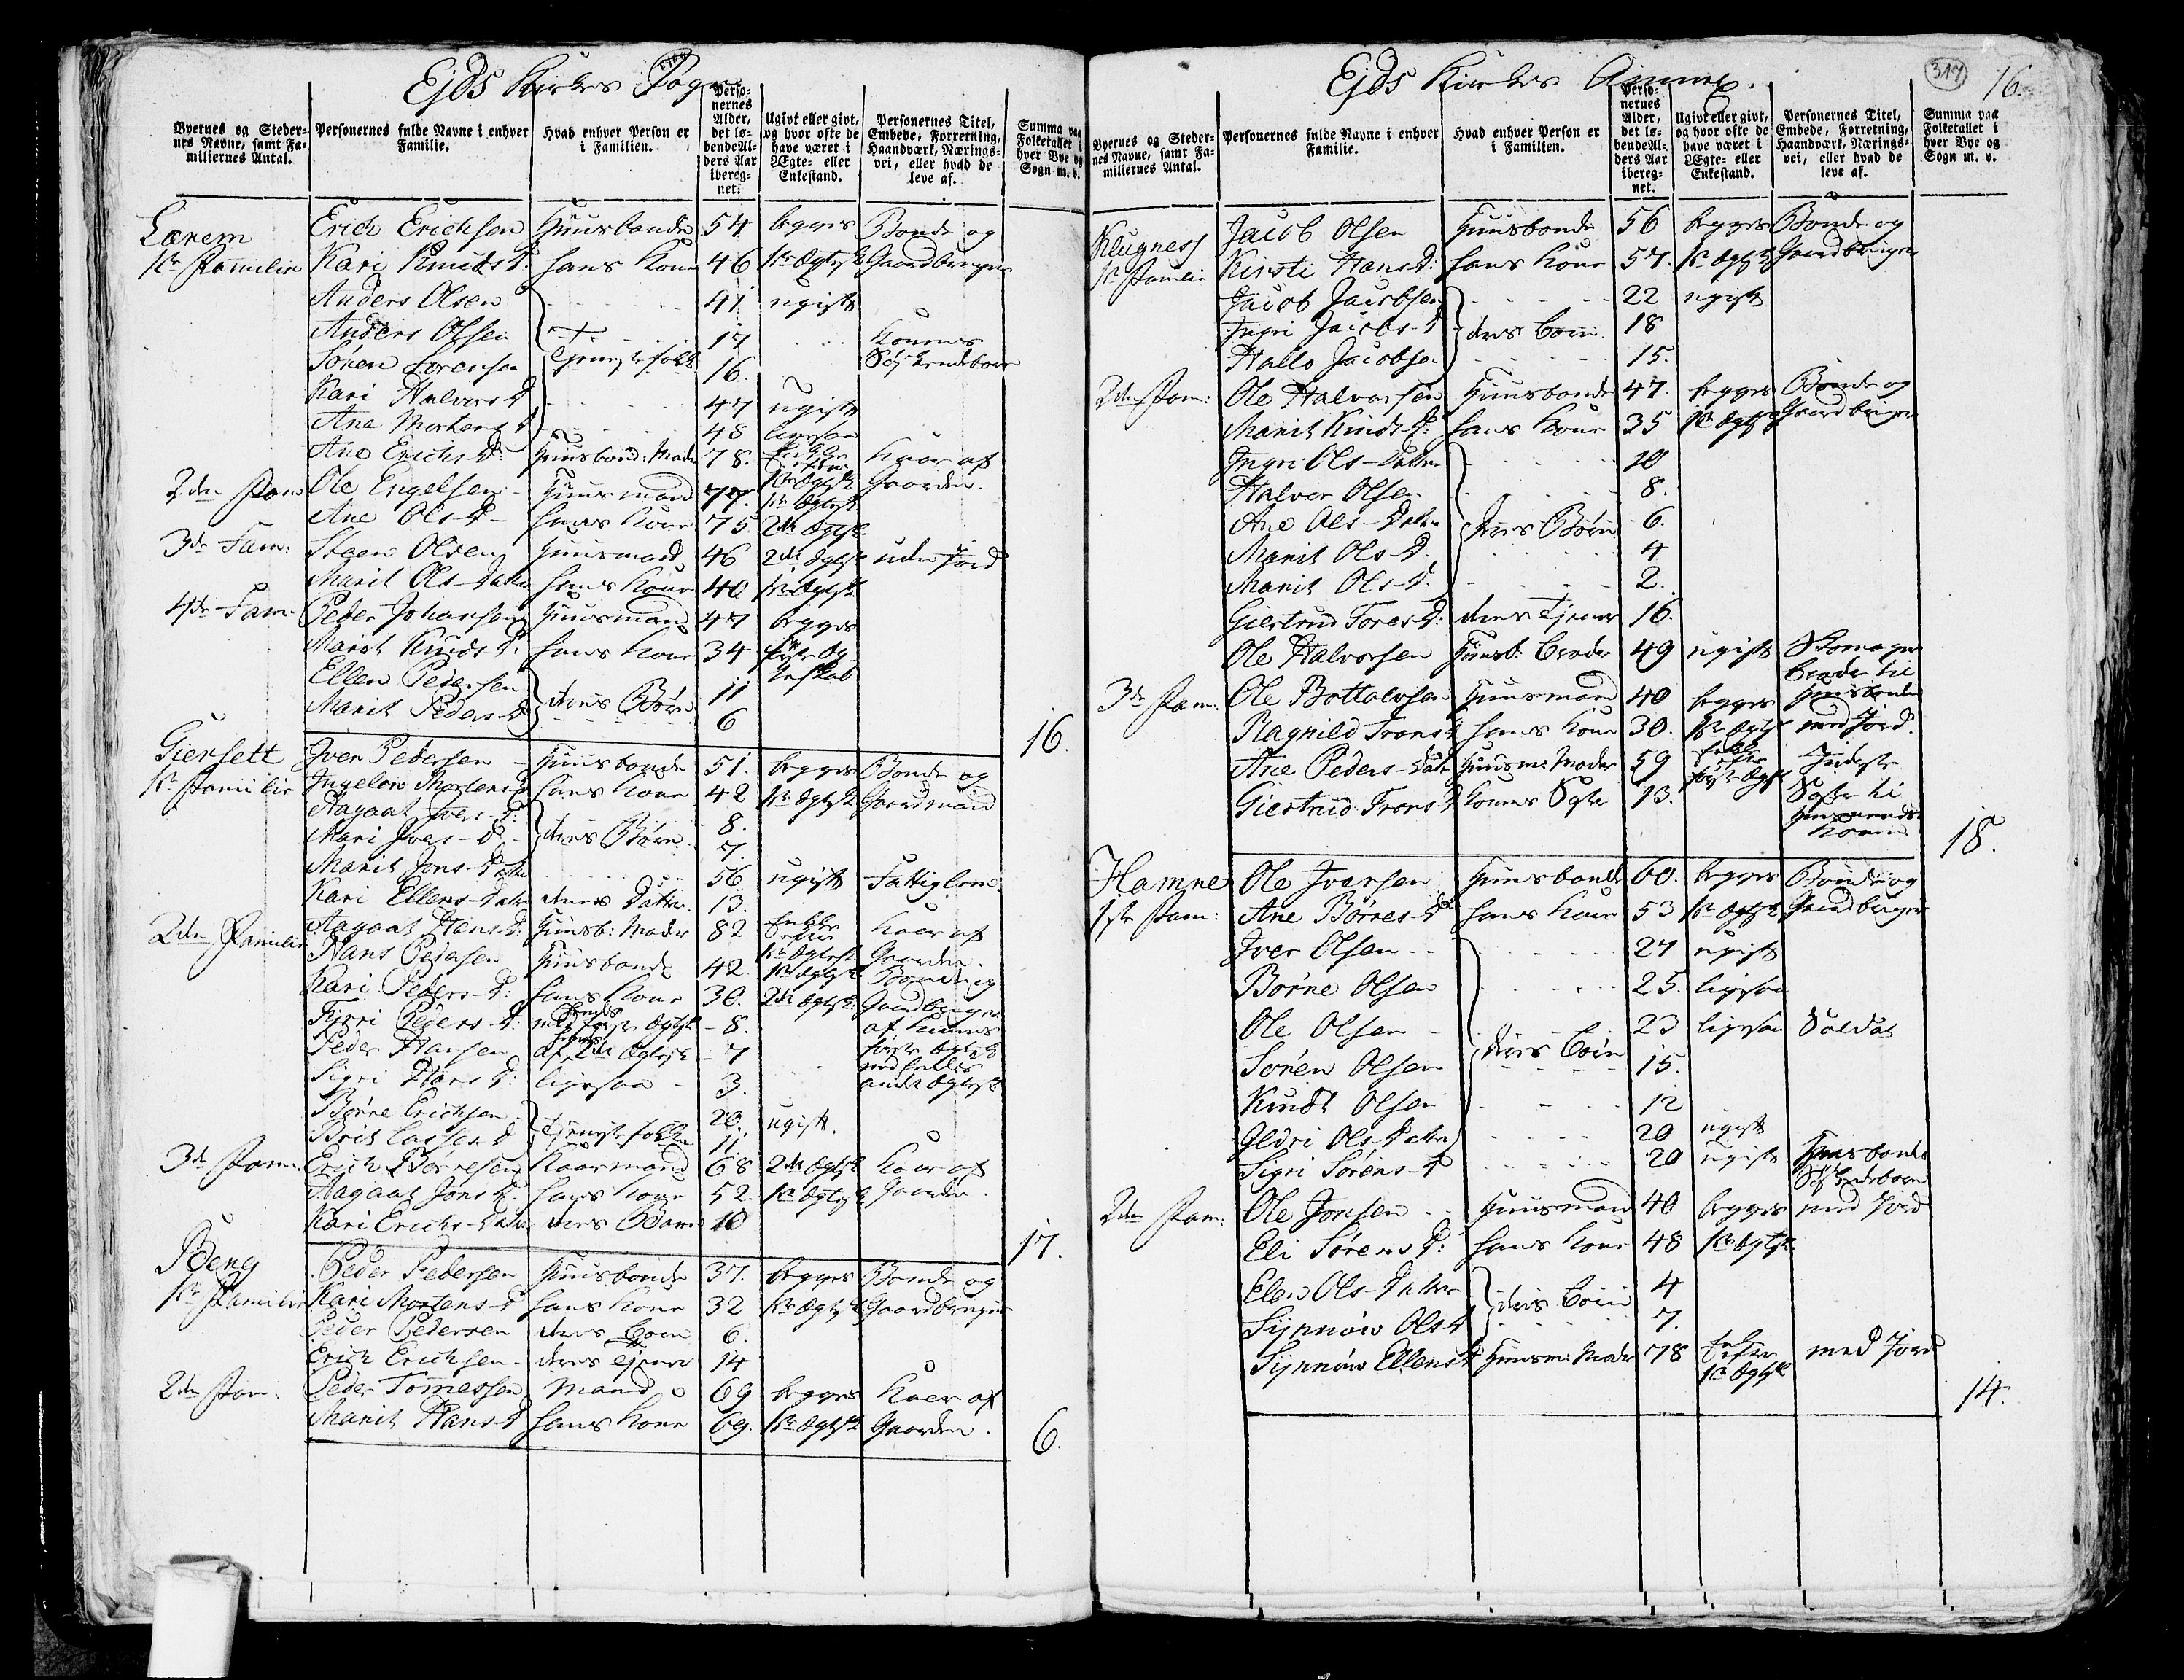 Ejds Kirkes Sogn
Byernes og Steder-nes Navne, samt Fa-miliernes Antal. Personernes fulde Navne i enhver Familie. Hvad enhver Person er i Familien. Perso-nernes Alder, det lø-bende Al-ders Aar ibereg-net. Ugivt eller givt, og hvor ofte de have været i Ægte- eller Enkestand. Personernes Titel, Embede, Forretning, Haandværk, Nærings-vei, eller hvad de leve af. Summa paa Folketallet i hver Bye og Sogn m. v.
Lærem Erich Erichsen Huusbonde 54 begges Bonde og
1te Familie Kari Knuds D: hans Kone 46 1te Ægtesk Gaardbruger
Anders Olsen 41 ugift
Anders Olsen 17 Konens
Søren Sorensen Tjenestefolk 16. Søskendebørn
Kari Halvers D 47 ugift
Ane Mortens D 48 ligesaa
Ane Erichs D: Huusbond: Moder 78. Enke efter Kaar af
2den Fam Ole Engelsen Huusmand 77. 1te Ægtesk Gaarden.
Ane Ols-D- hans Kone 75. 2det Ægtesk
3de Fam: Steen Olsen Huusmand 46 2det Ægtesk uden Jord
Marit Ols-Datter hans Kone 40 1te Ægtesk
4de Fam. Peder Johansen Huusmand 47 begges
Marit Knuds D: hans Kone 34 første Æg-
Ellen Pedersen 11 teskab
Marit Peders-D deres Børn 6
16.
Giersett Iver Pedersen Huusbonde 51. begges Bonde og
1te Familie Ingeborg Mortens D hans Kone 42 1te Ægtesk Gaardmand
Aagaat Ivers-D: 8.
Mari Ivers-D deres Børn 7
Marit Jons-Datter 56 ugift Fattiglem
Kari Ellens-Datter deres Datter 13.
2den Familie Aagaat Hans D: Huusb: Moder 82 Enke efter Kaar af
1te Ægtesk Gaarden.
Hans Pedersen Huusbonde 42. 1te Ægtesk Bonde og
Kari Peders-D: hans Kone 30. 2det Ægtesk Gaardbruger
Tyrri Peders-D: første Ægtesk 8. af Konens
Peder Hansen af 2det Ægtesk 7 første Ægtesk
Sigri Hans D: ligesaa 3. andet Ægtesk
Børre Erichsen 20. ugift.
Brit Lasses D Tjenestefolk 11.
3de Fam. Erich Børresen Kaarmand 68 2det Ægtesk Kaar af
Aagaat Jons D: hans Kone 52. 1te Ægtesk Gaarden.
Kari Erichs-Datter deres Barn 10
17.
Berg Peder Pedersen Huusbonde 37. begges Bonde og
1te Familie Kari Mortens-D hans Kone 32 1te Ægtesk Gaardbruger
Peder Pedersen deres Barn 6.
Erich Erichsen deres Tjener 14
2den Fam. Peder Tomessen Mand 69 begges Kaar af
Marit Hans-D hans Kone 69. 1te Ægtesk Gaarden.
6.
Ejds Kirkes Annex.
317 16.
Byernes og Steder-nes Navne, samt Fa-miliernes Antal. Personernes fulde Navne i enhver Familie. Hvad enhver Person er i Familien. Perso-nernes Alder, det lø-bende Al-ders Aar ibereg-net. Ugivt eller givt, og hvor ofte de have været i Ægte- eller Enkestand. Personernes Titel, Embede, Forretning, Haandværk, Nærings-vei, eller hvad de leve af. Summa paa Folketallet i hver Bye og Sogn m. v.
Klugness Jacob Olsen Huusbonde 56 begges Bonde og
1te Familie Kirsti Hans D: hans Kone 57. 1te Ægtesk Gaardbruger
Jacob Jacobsen 22 ugift
Ingri Jacobs-D deres Børn 18
Hallo Jacobsen 15.
2den Fam: Ole Halvorsen Huusbonde 47. begges Bonde og
Marit Knuds-D: hans Kone 35 1te Ægtesk Gaardbruger
Ingri Ols-Datter 10
Halvor Olsen 8.
Ane Ols-Datter deres Børn 6.
Marit Ols-D. 4
Marit Ols-D. 2.
Giertrud Tores-D: deres Tjener 16.
Ole Halvorsen Huusb: Broder 49 ugift
Broder til
3de Fam. Ole Bottolvsen Huusmand 40 begges Huusbonden
Ragnild Trons D hans Kone 30. 1te Ægtesk med Jord.
Ane Peders-Datt Huusm: Moder 59 Enke efter første Ægtesk Inderste
Giertrud Trons-D Konens Søster 13. Søster til
Huusmandens Kone
18.
Hamne Ole Iversen Huusbonde 60. begges Bonde og
1ste Fam: Ane Børres-D hans Kone 53 1te Ægtesk Gaardbruger
Iver Olsen 27 ugift
Børne Olsen 25. ligesaa
Ole Olsen 23 ligesaa Soldat
Søren Olsen deres Børn 15.
Knudt Olsen 12
Gldri Ols-Datter 20 ugift
Sigri Sørens-D 20 ugift Huusbonde
Søskendebarn
2den Fam: Ole Jonsen Huusmand 40 begges med Jord
Eli Sørens D: hans Kone 48 1te Ægtesk.
Elen Ols-Datter 4
Synnøve Ols-D deres Børn 7.
Synnøve Ellens D Huusm: Moder 78 Enke efter 1te Ægtesk med Jord
14.